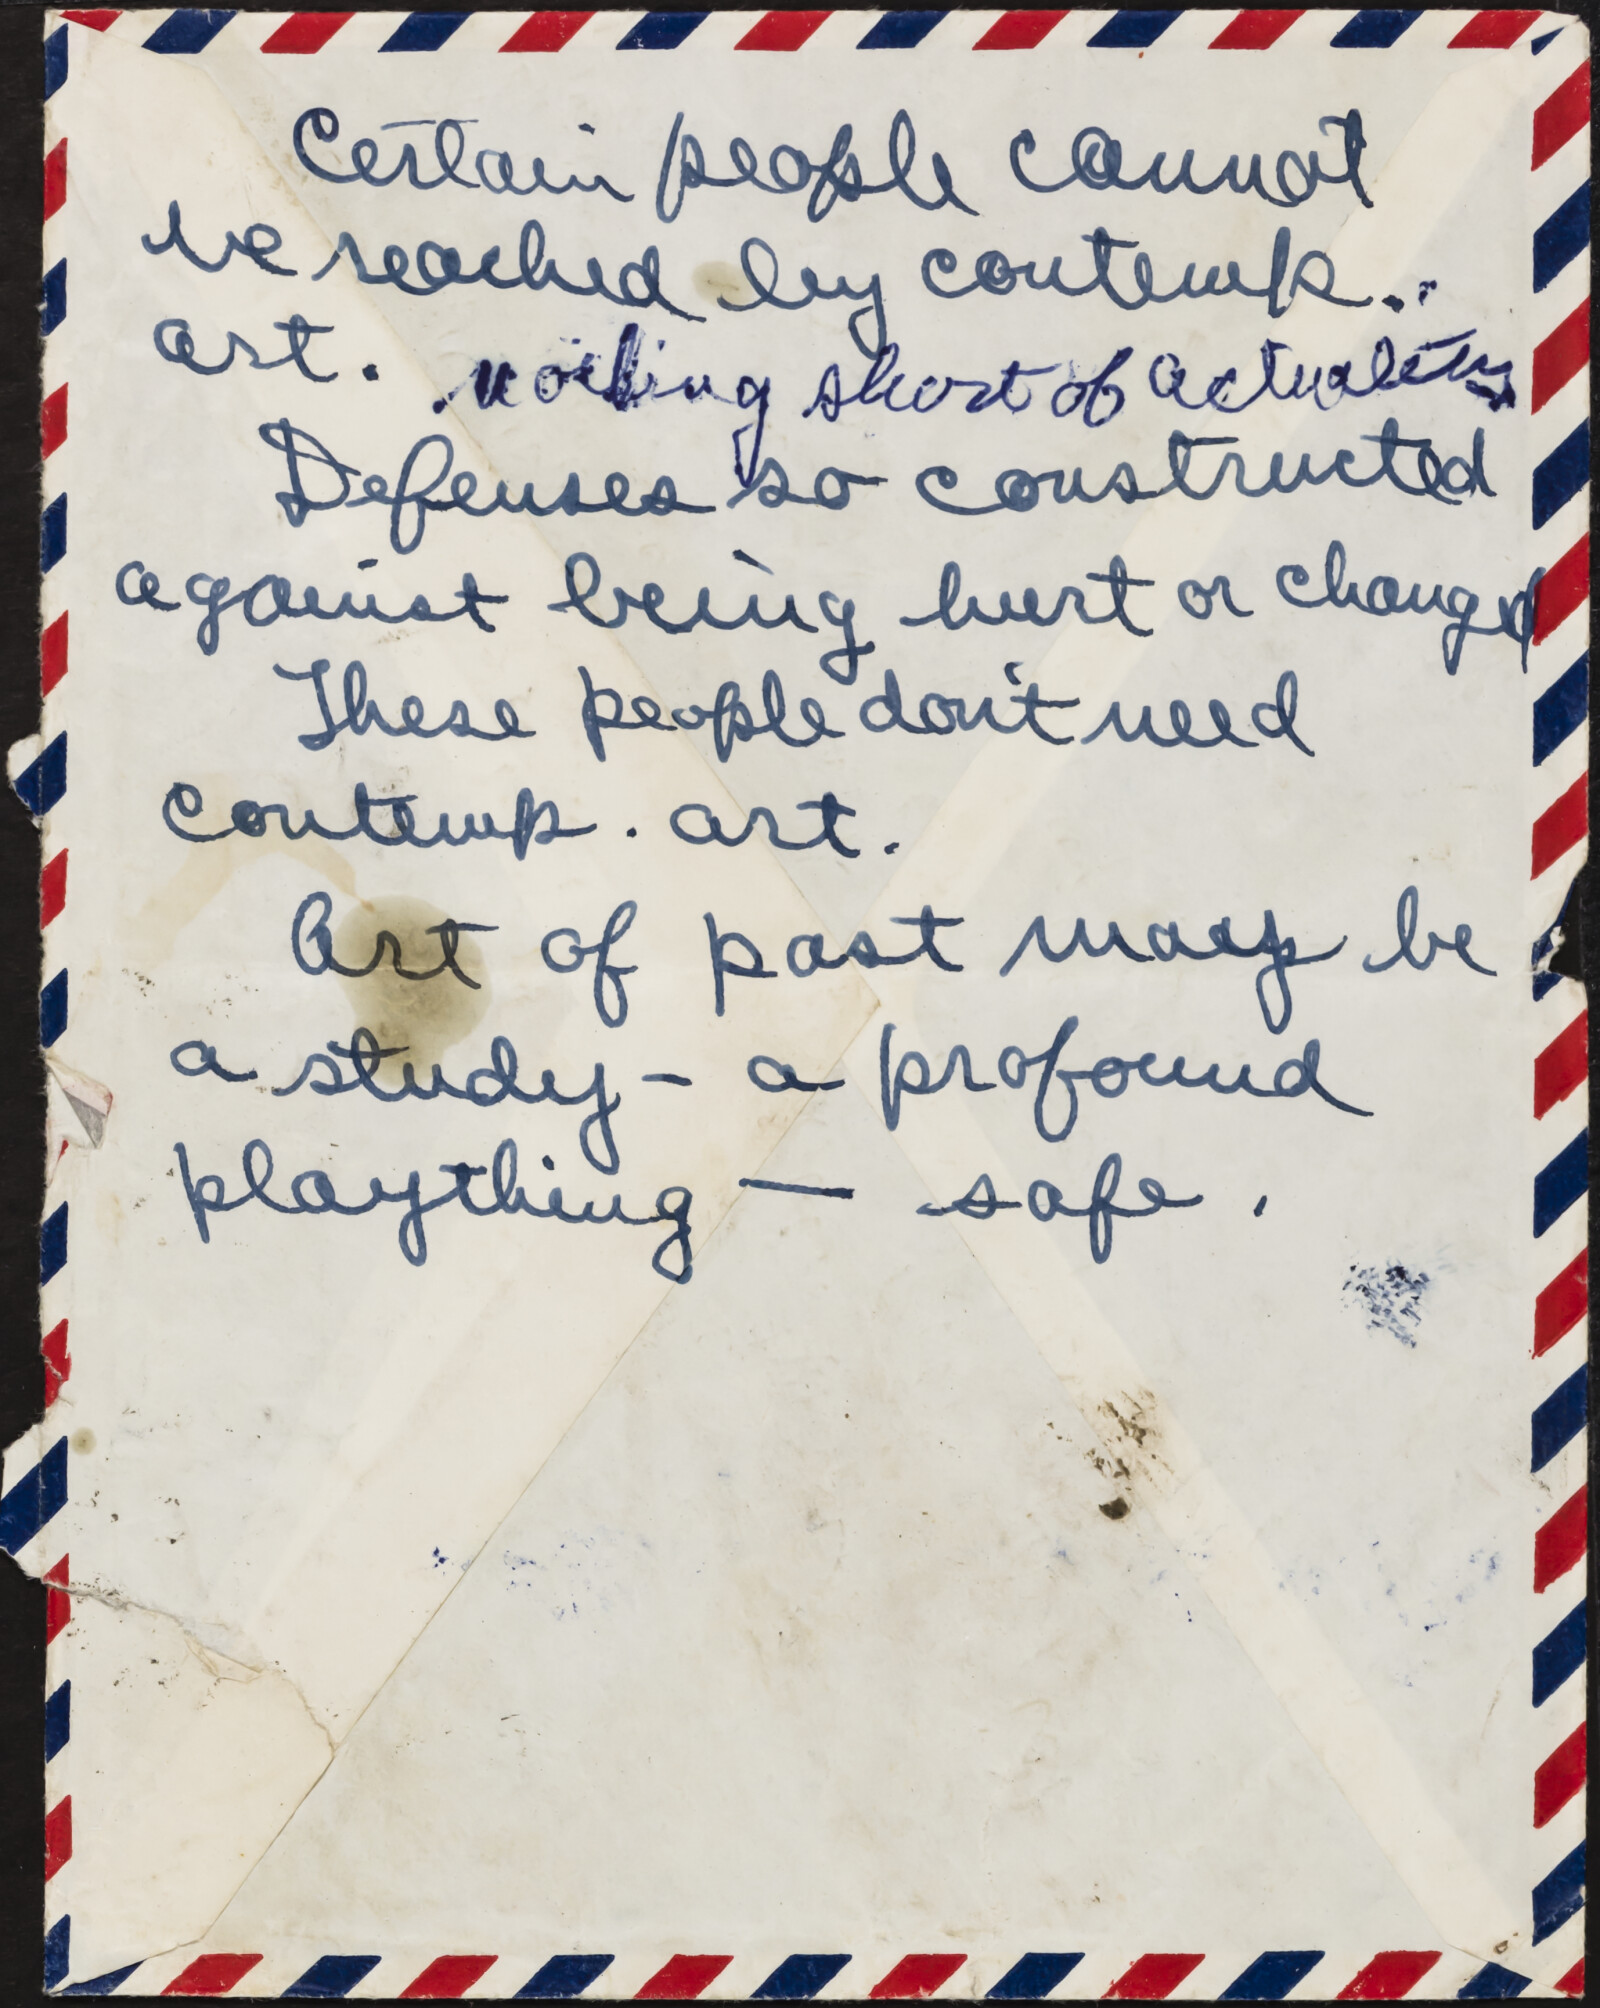 Certain people cannot
be reached by contemp.
art. nothing short of actuality
Defenses so constructed
against being hurt or changed
These people don't need
contemp. art.
Art of past may be
a study – a profound
plaything — safe.